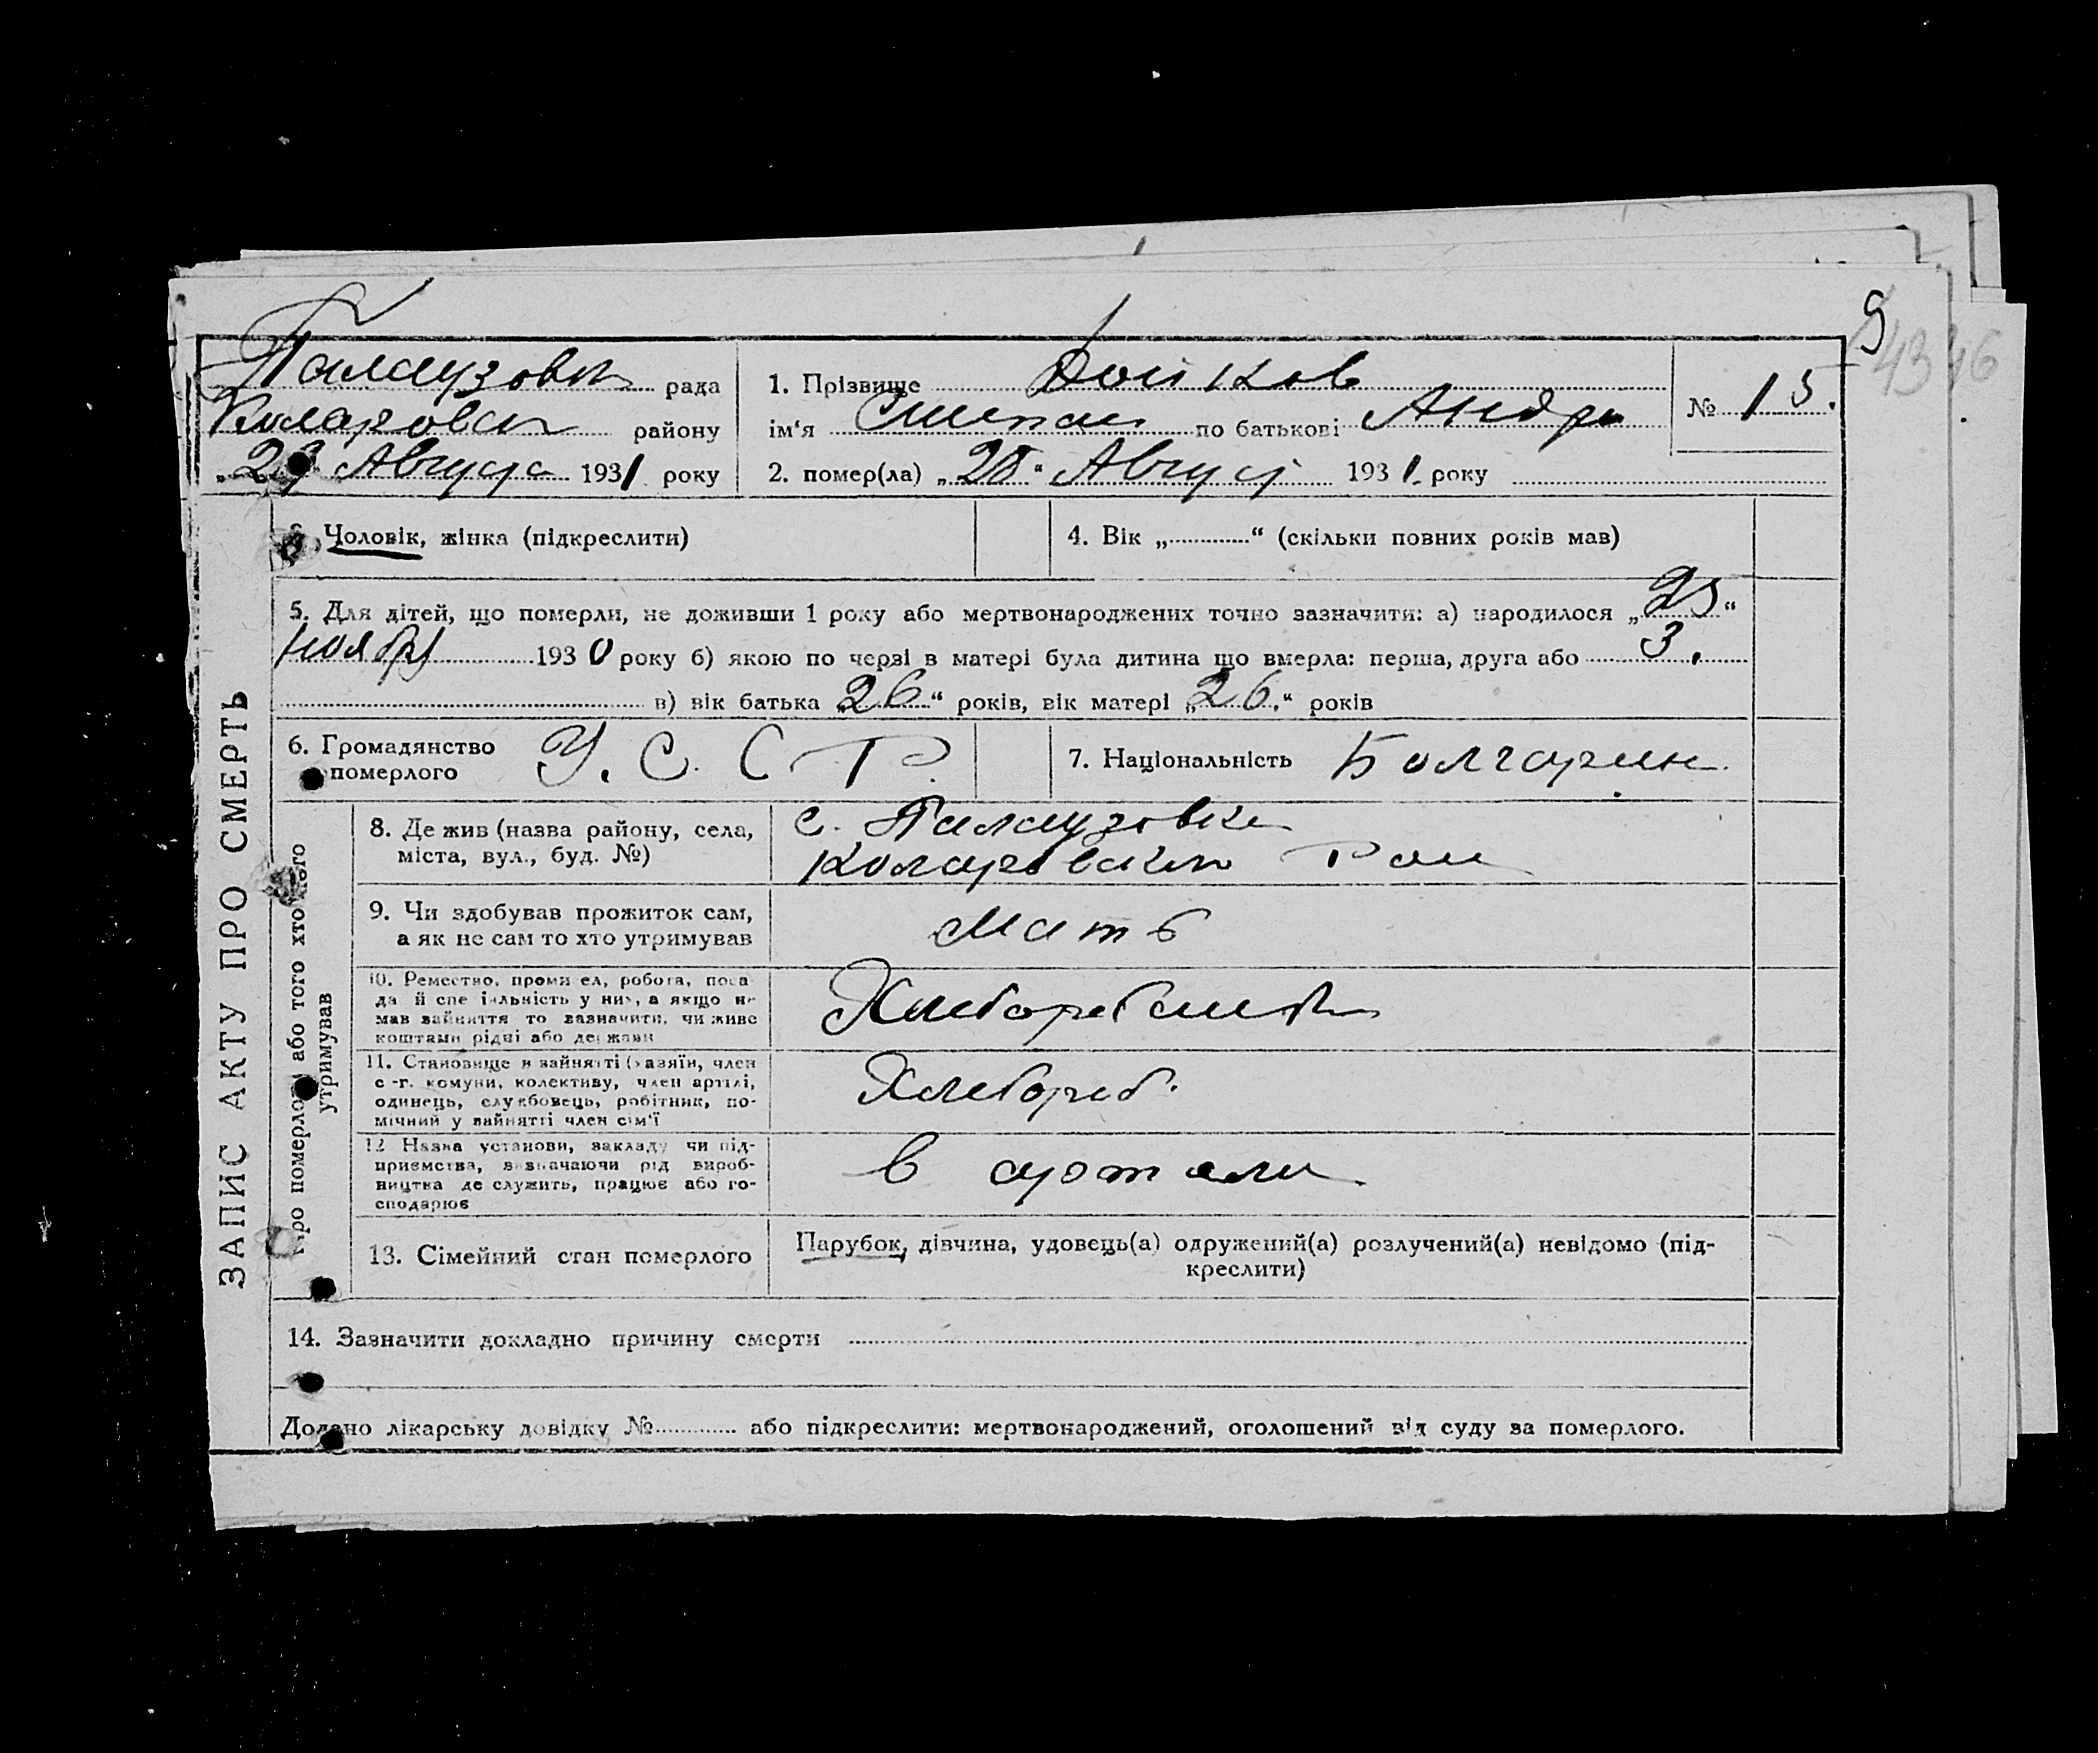 9
43 46
Палаузовск рада
Коларовск району
„29 Августа 1931 року
1. Прізвище Бойков
ім‘я Степан по батькові Андре
2. помер(ла) „28“ Август 1931 року
№ 15.
ЗАПИС АКТУ ПРО СМЕРТЬ
3. Чоловік, жінка (підкреслити)
4. Вік „ “ (скільки повних років мав)
5. Для дітей, що померли, не доживши 1 року або мертвонароджених точно зазначити: а) народилося „25“
ноября 1930 року б) якою по черзі в матері була дитина що вмерла: перша, друга або 3.
в) вік батька „26“ років, вік матері „26.“ років
6. Громадянство
померлого
У. С. С. Р.
7. Національність Болгарин
Про померлого або того хто його
утримував
8. Де жив (назва району, села,
міста, вул., буд. №)
с. Палаузовка
Коларовский Рай
9. Чи здобував прожиток сам,
а як не сам то хто утримував
Мать
10. Ремество, промисел, робота, поса-
да й спеціяльність у них, а якщо не
мав зайняття то зазначити, чи живе
коштами рідні або держави
11. Становище в зайнятті (хазяїн, член
с.-г. комуни, колективу, член артілі,
одинець, службовець, робітник, по-
мічний у зайнятті член сім‘ї
Хлебороб.
12 Назва установи, закладу чи під-
приємства, зазначаючи рід вироб-
ництва де служить, працює або го-
сподарює
в артели
13. Сімейний стан померлого
Парубок, дівчина, удовець(а) одружений(а) розлучений(а) невідомо (під-
креслити)
14. Зазначити докладно причину смерти
Додано лікарську довідку № або підкреслити: мертвонароджений, оголошений від суду за померлого.